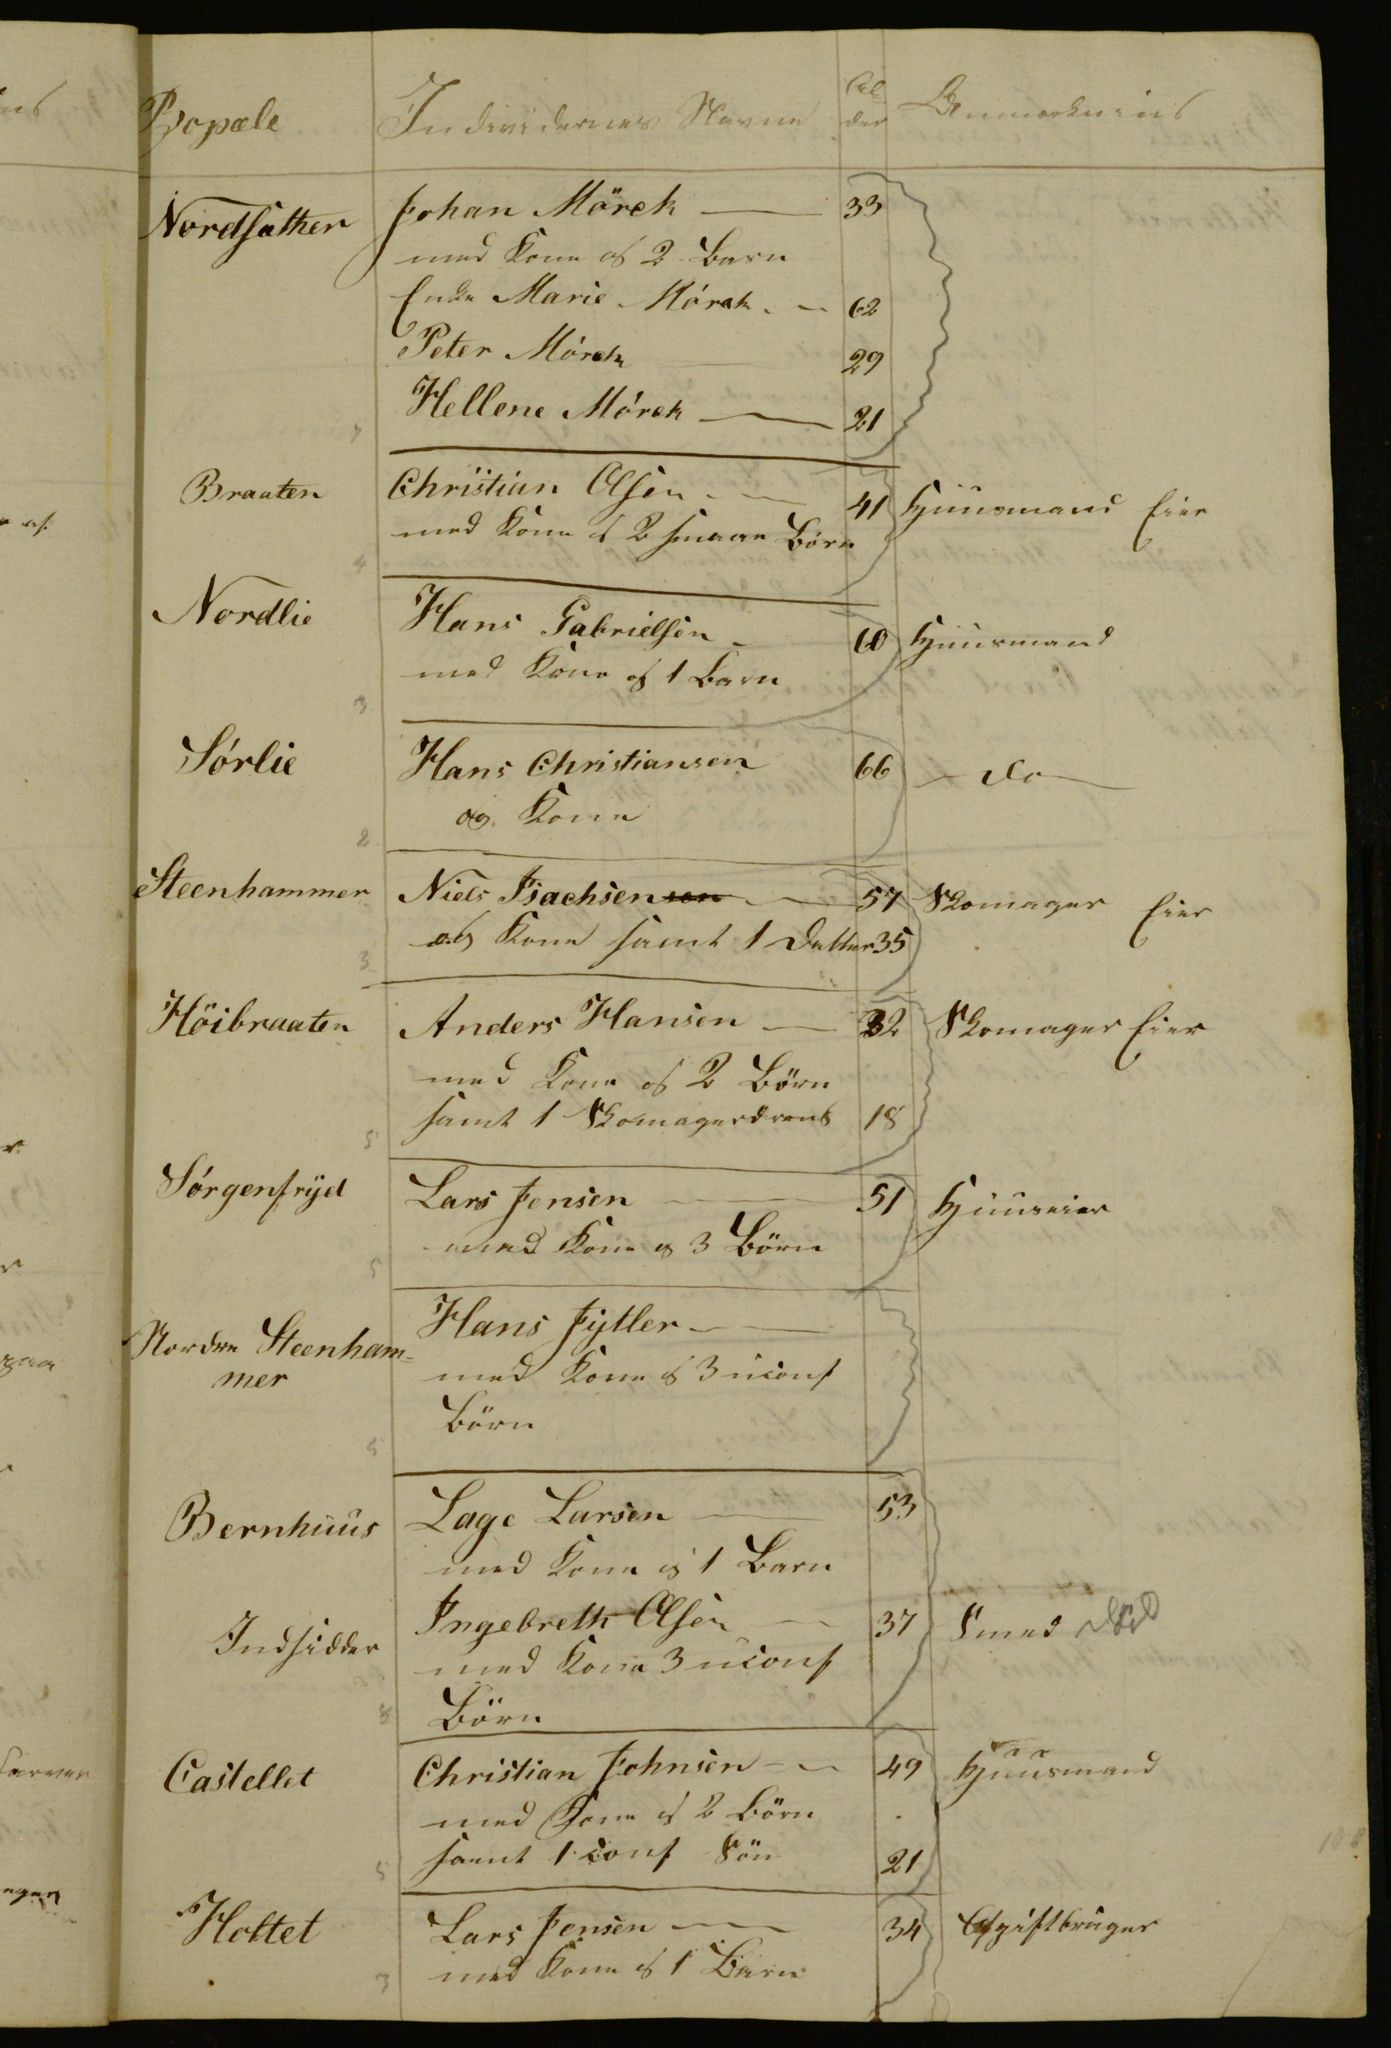 Bopæle Individernes Navne Al- der Anmærkning
Nordsæther Johan Mörch 33
med Kone og 2 Barn
Enke Marie Mörch 62
Peter Mörch 29
Hellene Mörch 21
7
Braaten Christian Olsen 41 Huusmand Eier
med Kone og 2 smaae Börn
4
Nordlie Hans Gabrielsen 60 Huusmand
med Kone og 1 Barn
3
Sörlie Hans Christiansen 66 do
og Kone
2
Steenhammer Niels Isachsen 57 Skomager Eier
og Kone samt 1 Datter 35
3
Höibraaten Anders Hansen 32 Skomager Eier
med Kone og 2 Börn
samt 1 Skomagerdreng 18
5
Sörgenfryd Lars Jensen 51 Huuseier
med Kone og 3 Börn
5
Nordre Steenham= Hans Jytler
mer med Kone og 3 uconf
Börn
5
Bernhuus Lage Larsen 53
med Kone og 1 Barn
Indsidder Ingebreth Olsen 37 Smed
med Kone 3 uconf
Börn
8
Castellet Christian Johnsen 49 Huusmand
med Kone og 2 Börn
samt 1 conf Sön 21
5
Holtet Lars Jensen 34 Afgiftbruger
med Kone og 1 Barn
3